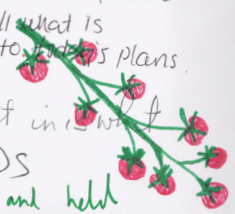 ll what is
to today's plans.
t in is what
DS
and held